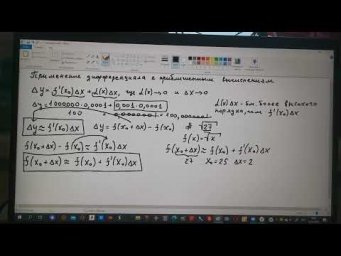 Применение дифференциала к приближенным вычислениям
Δy = f'(x₀)Δx + α(x)Δx, где α(x)→0 и Δx→0
Δy = 1000000·0,0001 + 0,001·0,0001
α(x)Δx - б.м. более высокого
порядка, чем f'(x₀)Δx
100
Δy ≈ f'(x₀)Δx
Δy = f(x₀+Δx) - f(x₀)
√27
f(x) = √x
f(x₀+Δx) - f(x₀) ≈ f'(x₀)Δx
f(x₀+Δx) ≈ f(x₀) + f'(x₀)Δx
27 x₀ = 25 Δx = 2
f(x₀+Δx) ≈ f(x₀) + f'(x₀)Δx